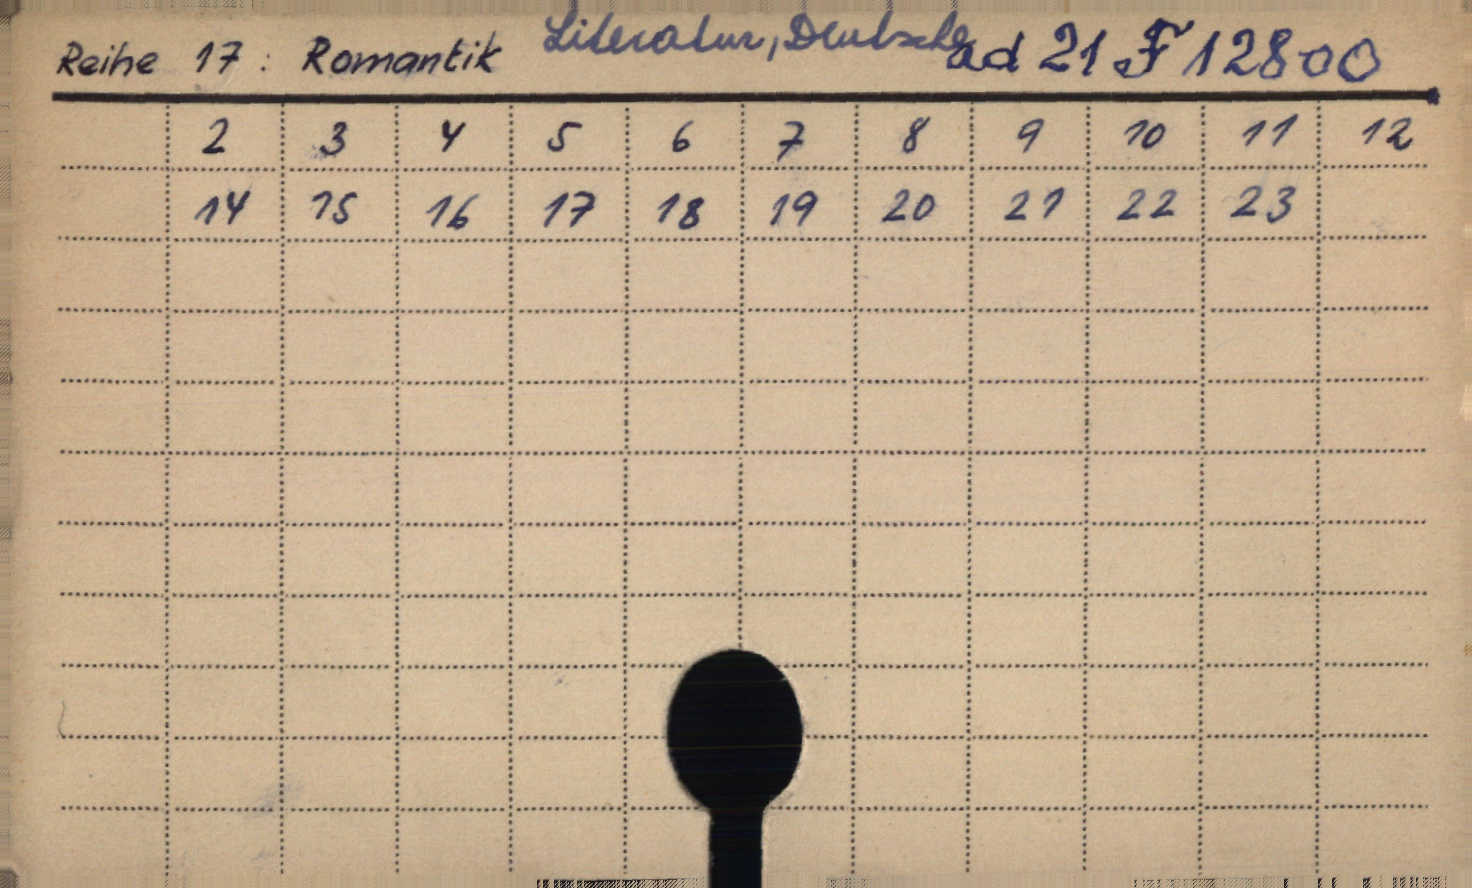 Reihe 17: Romantik Literatur, Deutsche ad 21 F 12800
2 3 4 5 6 7 8 9 10 11 12
14 15 16 17 18 19 20 21 22 23